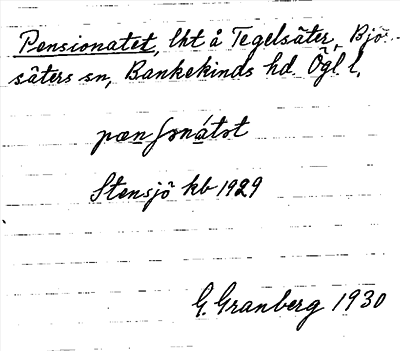 Pensionatet, lht å Tegelsäter, Bjö-
säters sn, Bankekinds hd. Ögl l.
pœnʃonátət
Stensjö kb 1929
G. Granberg 1930